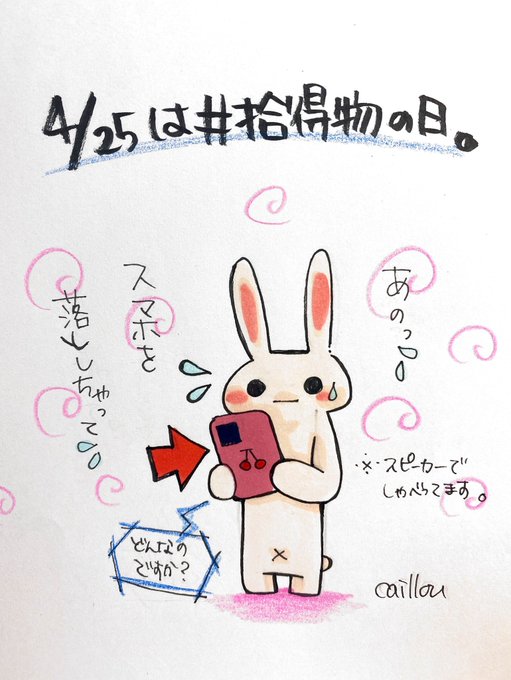 4/25は#拾得物の日。
あのっ
スマホを
落としちゃって
※スピーカーで
しゃべってます。
どんなの
ですか?
caillou